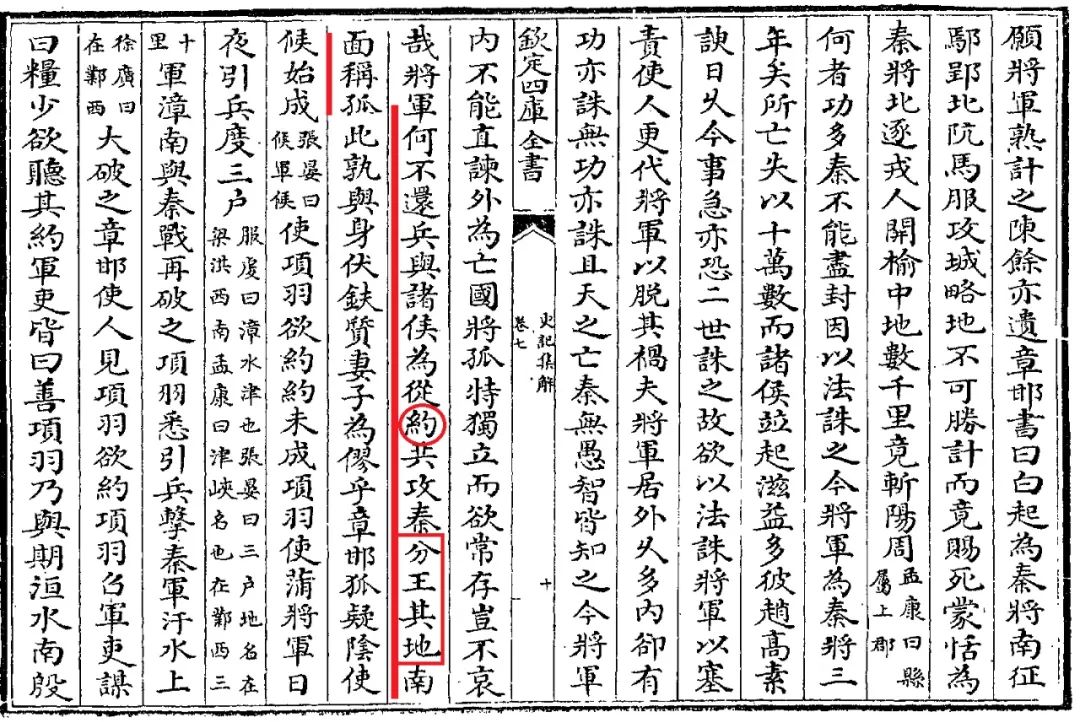 願將軍熟計之陳餘亦遺章邯書曰白起為秦將南征
鄢郢北阬馬服攻城略地不可勝計而竟賜死蒙恬為
秦將北逐戎人開榆中地數千里竟斬陽周孟康曰縣屬上郡
何者功多秦不能盡封因以法誅之今將軍為秦將三
年矣所亡失以十萬數而諸侯竝起滋益多彼趙高素
諛日乆今事急亦恐二世誅之故欲以法誅將軍以塞
責使人更代將軍以脫其禍夫將軍居外乆多內卻有
功亦誅無功亦誅且天之亡秦無愚智皆知之今將軍
欽定四庫全書
史記集解
卷七
十
內不能直諫外為亡國將孤特獨立而欲常存豈不哀
哉將軍何不還兵與諸侯為從約共攻秦分王其地南
面稱孤此孰與身伏鈇質妻子為僇乎章邯狐疑陰使
候始成張晏曰候軍候使項羽欲約約未成項羽使蒲將軍日
夜引兵度三户服虔曰漳水津也張晏曰三户地名在梁淇西南孟康曰津峽名也在鄴西三
十里軍漳南與秦戰再破之項羽悉引兵擊秦軍汙水上
徐廣曰在鄴西大破之章邯使人見項羽欲約項羽召軍吏謀
曰糧少欲聽其約軍吏皆曰善項羽乃與期洹水南殷